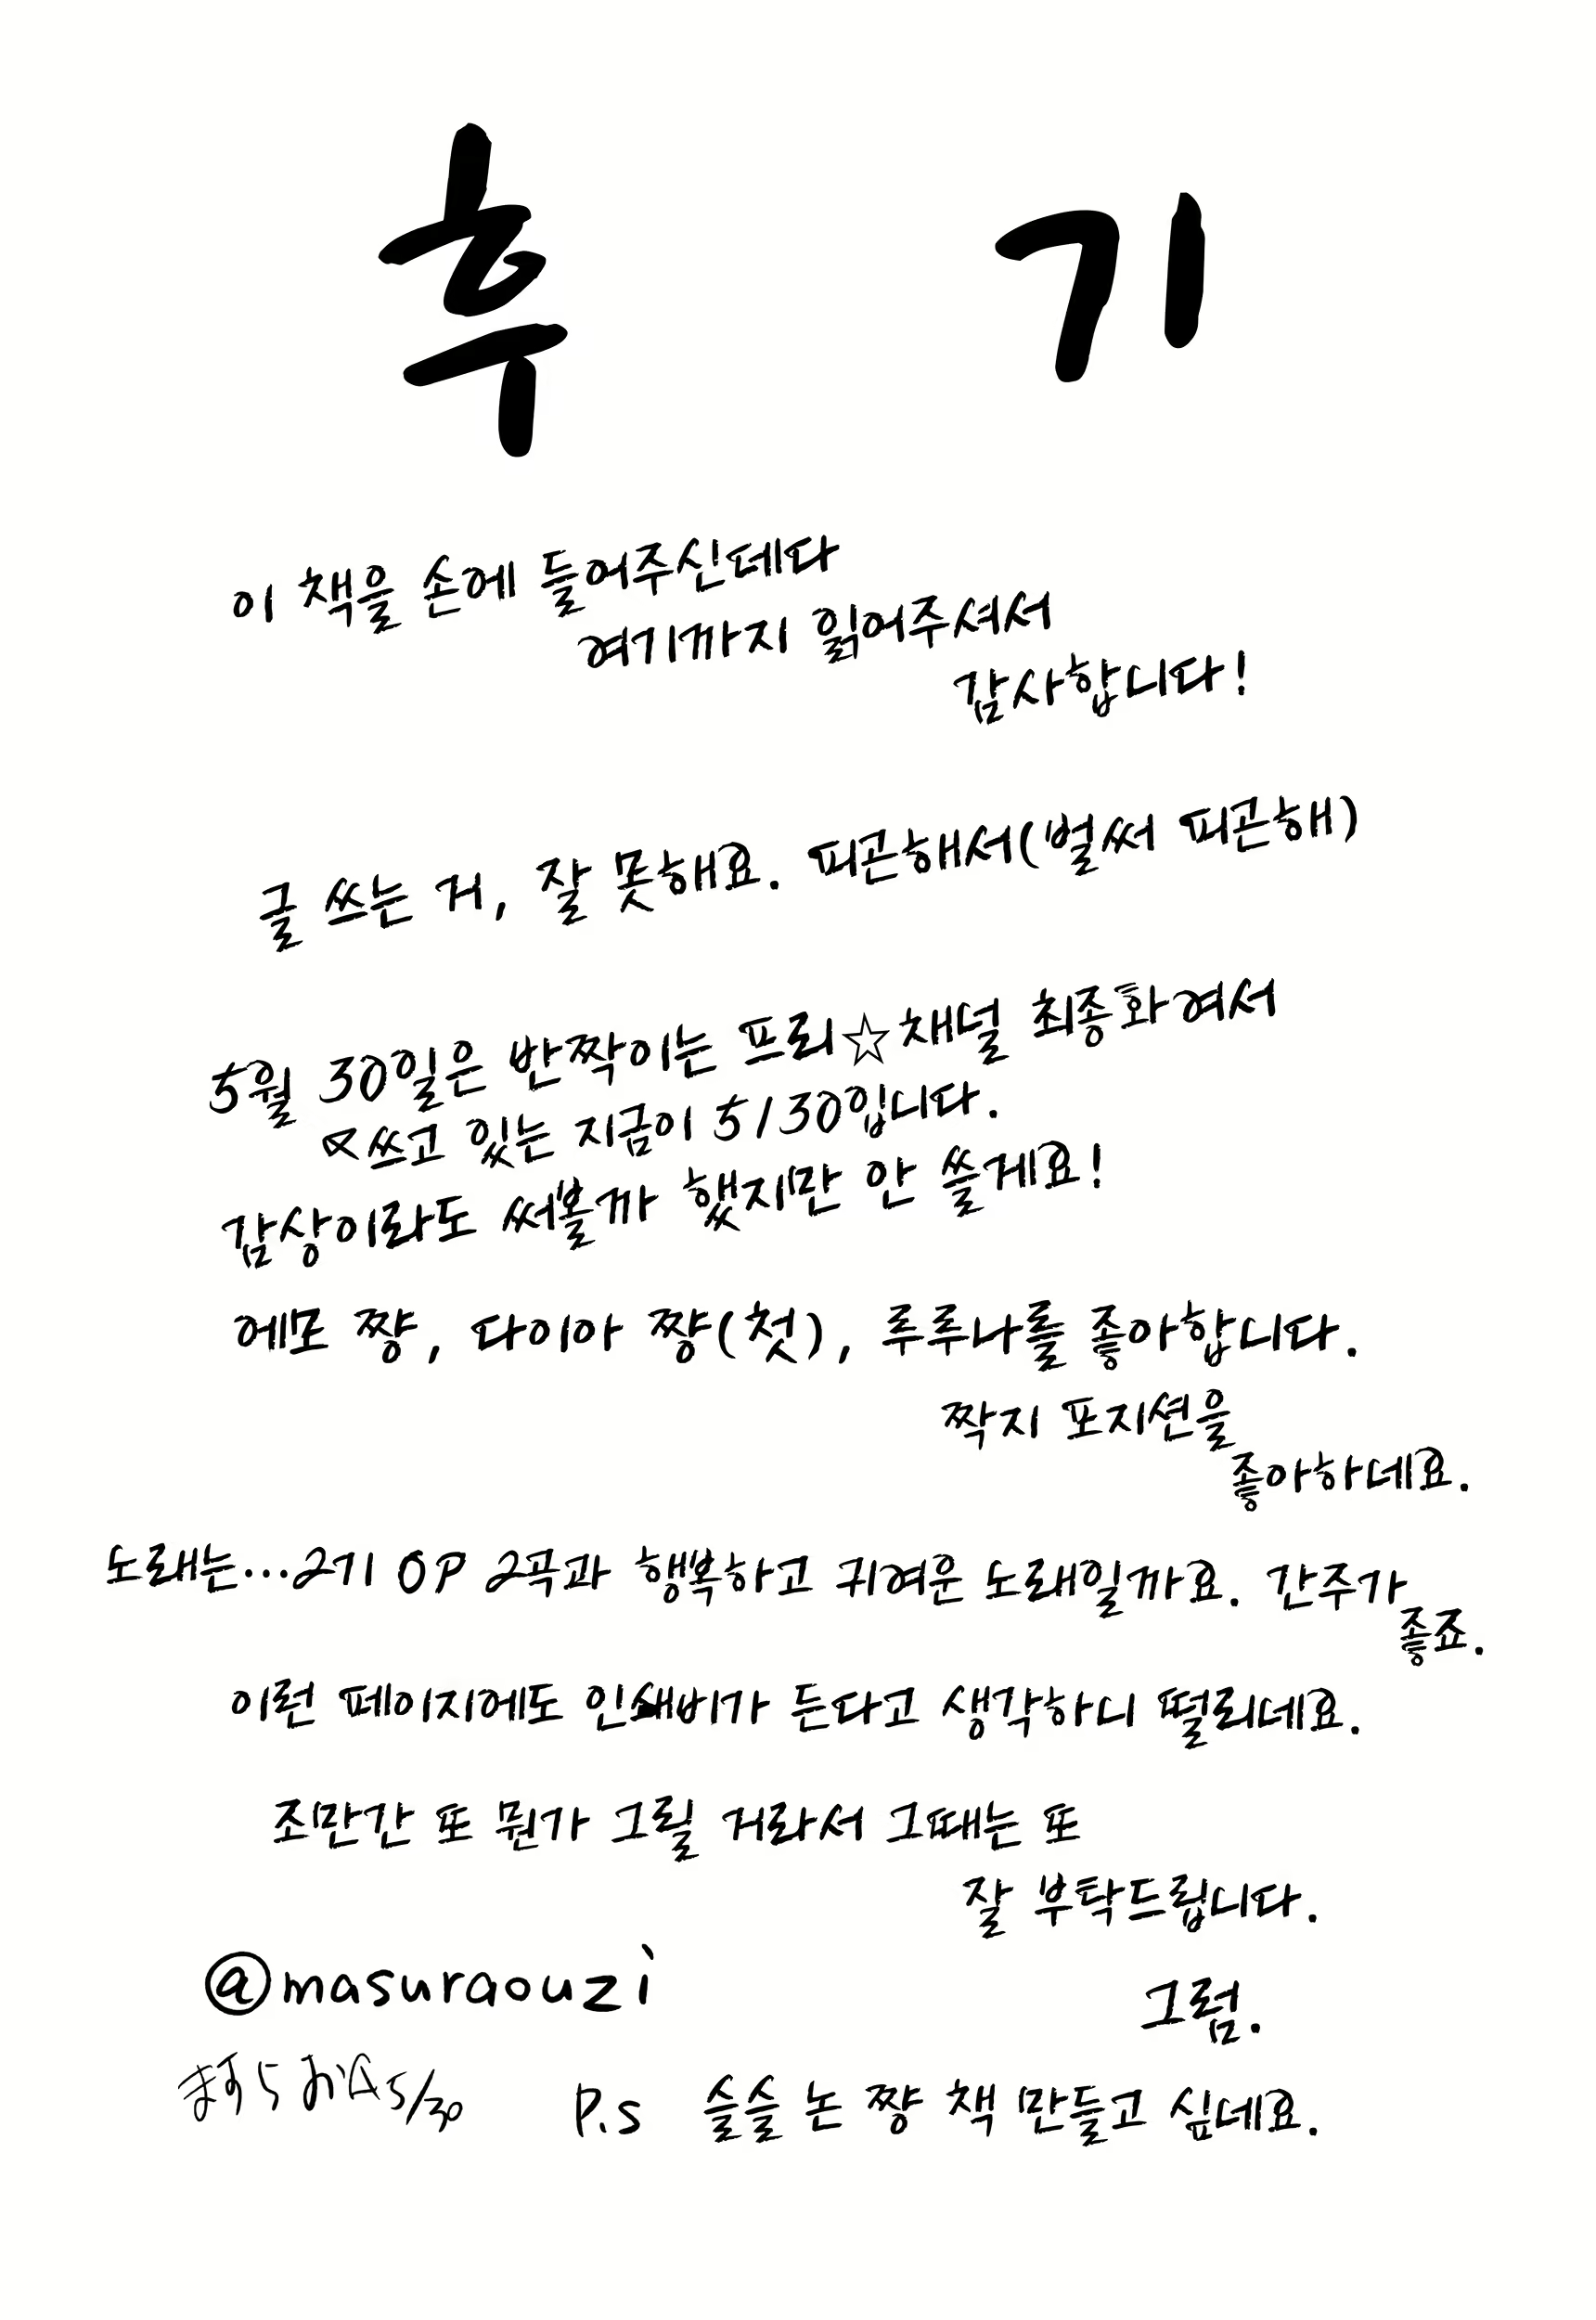 후 기
이 책을 손에 들어주신데다
여기까지 읽어주셔서
감사합니다!
글 쓰는 거, 잘 못해요. 피곤해서(벌써 피곤해)
5월 30일은 반짝이는 프리☆채널 최종화여서
∝쓰고 있는 지금이 5/30입니다.
감상이라도 써볼까 했지만 안 쓸게요!
에모 쨩, 다이아 쨩(첫), 루루나를 좋아합니다.
짝지 포지션을
좋아하네요.
노래는…2기 OP 2곡과 행복하고 귀여운 노래일까요. 간주가
좋죠.
이런 페이지에도 인쇄비가 든다고 생각하니 떨리네요.
조만간 또 뭔가 그릴 거라서 그때는 또
잘 부탁드립니다.
@masuraouzi
그럼.
ますらお 5/30
P.s 슬슬 논 쨩 책 만들고 싶네요.